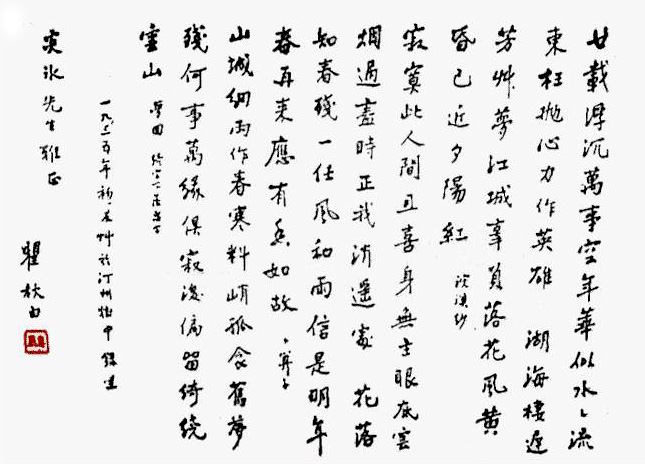 廿載浮沉萬事空年華似水々流
東枉抛心力作英雄 湖海棲遲
芳艸夢江城辜負落花風黃
昏已近夕陽紅 浣溪紗
寂寞此人間且喜身無主眼底雲
烟過盡時正我逍遥處 花落
知春殘一任風和雨信是明年
春再来應有香如故 卜算子
山城細雨作春寒料峭孤衾舊夢
殘何事萬緣俱寂後偏留綺繞
雲山 夢回
一九三五年初艸於汀州獄中 錄呈
炎冰先生雅正
瞿秋白